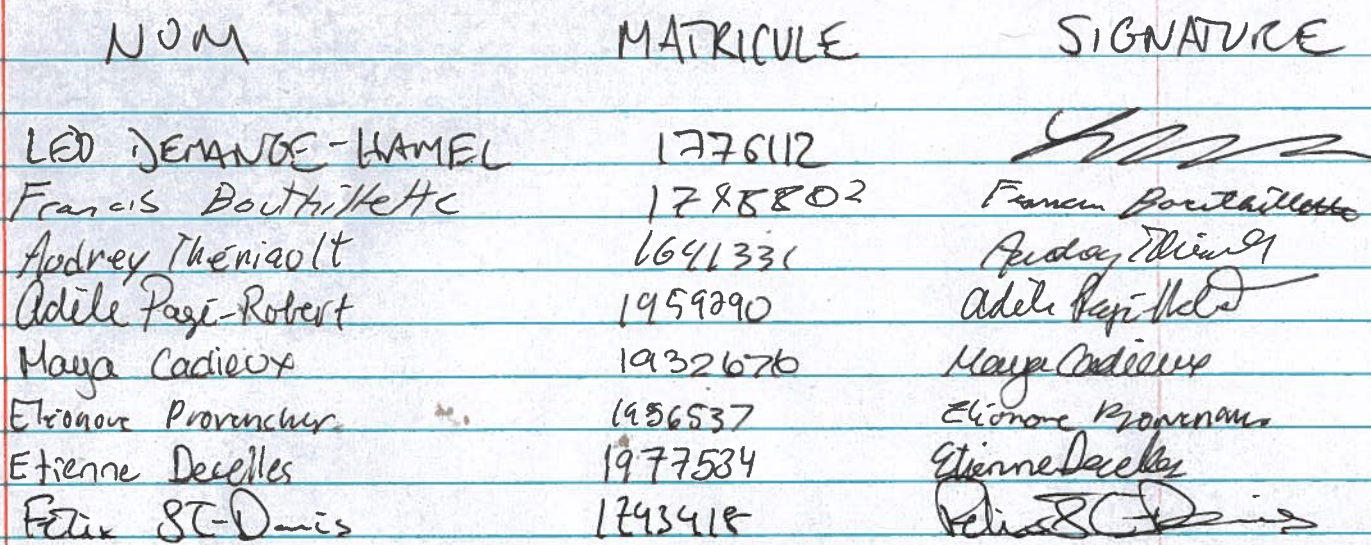 NOM MATRICULE SIGNATURE
LEO DEMANGE-HAMEL 1776112
Francis Bouthillette Francis Bouthillette
Audrey Thériault 1641331 Audrey
Adèle Pagé-Robert Adèle Pagé
Maya Cadieux 1932676 Maya Cadieux
Eléonore Provencher 1956537 Eléonore
Etienne Decelles 1977534 Etienne Decelles
Félix ST-Denis Félix ST-Denis